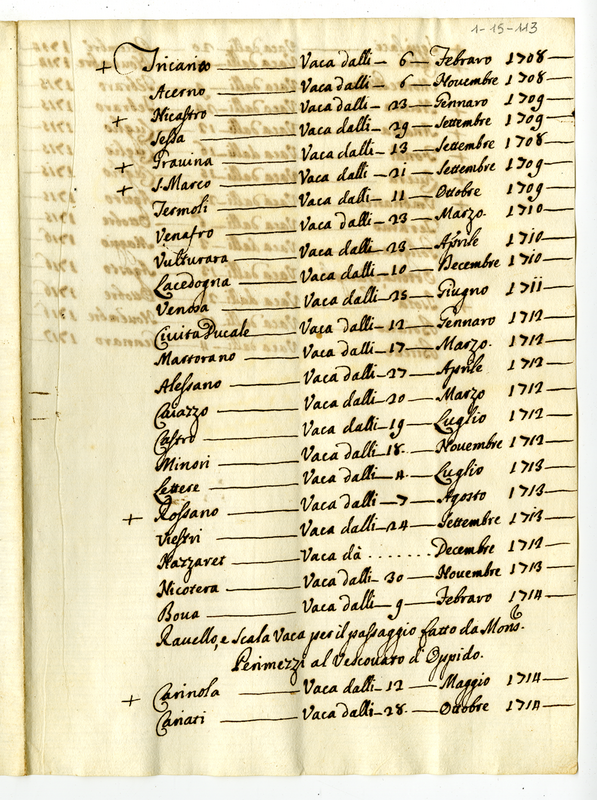 1-15-113
+ Tricarico Vaca dalli 6 Febraro 1708
Acerno Vaca dalli 6 Novembre 1708
+ Nicastro Vaca dalli 23 Gennaro 1709
Sessa Vaca dalli 29 Settembre 1709
+ Gravina Vaca dalli 13 Settembre 1708
+ S. Marco Vaca dalli 21 Settembre 1709
Termoli Vaca dalli 11 Ottobre 1709
Venafro Vaca dalli 23 Marzo. 1710
Vulturara Vaca dalli 23 Aprile 1710
Lacedogna Vaca dalli 10 Decembre 1710
Venosa Vaca dalli 25 Giugno 1711
Civita Ducale Vaca dalli 12 Gennaro 1712
Martorano Vaca dalli 17 Marzo. 1712
Alessano Vaca dalli 27 Aprile 1712
Caiazzo Vaca dalli 20 Marzo 1712
Castro Vaca dalli 19 Luglio 1712
Minori Vaca dalli 18. Novembre 1712
Lettere Vaca dalli 4. Luglio 1713
+ Rossano Vaca dalli 7 Agosto 1713
Viestri Vaca dalli 24 Settembre 1713
Nazzaret Vaca dà ....... Decembre 1712
Nicotera Vaca dalli 30 Novembre 1713
Boua Vaca dalli 9 Febraro 1714
Ravello, e Scala Vaca per il passaggio fatto da Mons.
Perimezzi al Vescovato d'Oppido.
+ Carinola Vaca dalli 12 Maggio 1714
Cariati Vaca dalli 28. Ottobre 1714